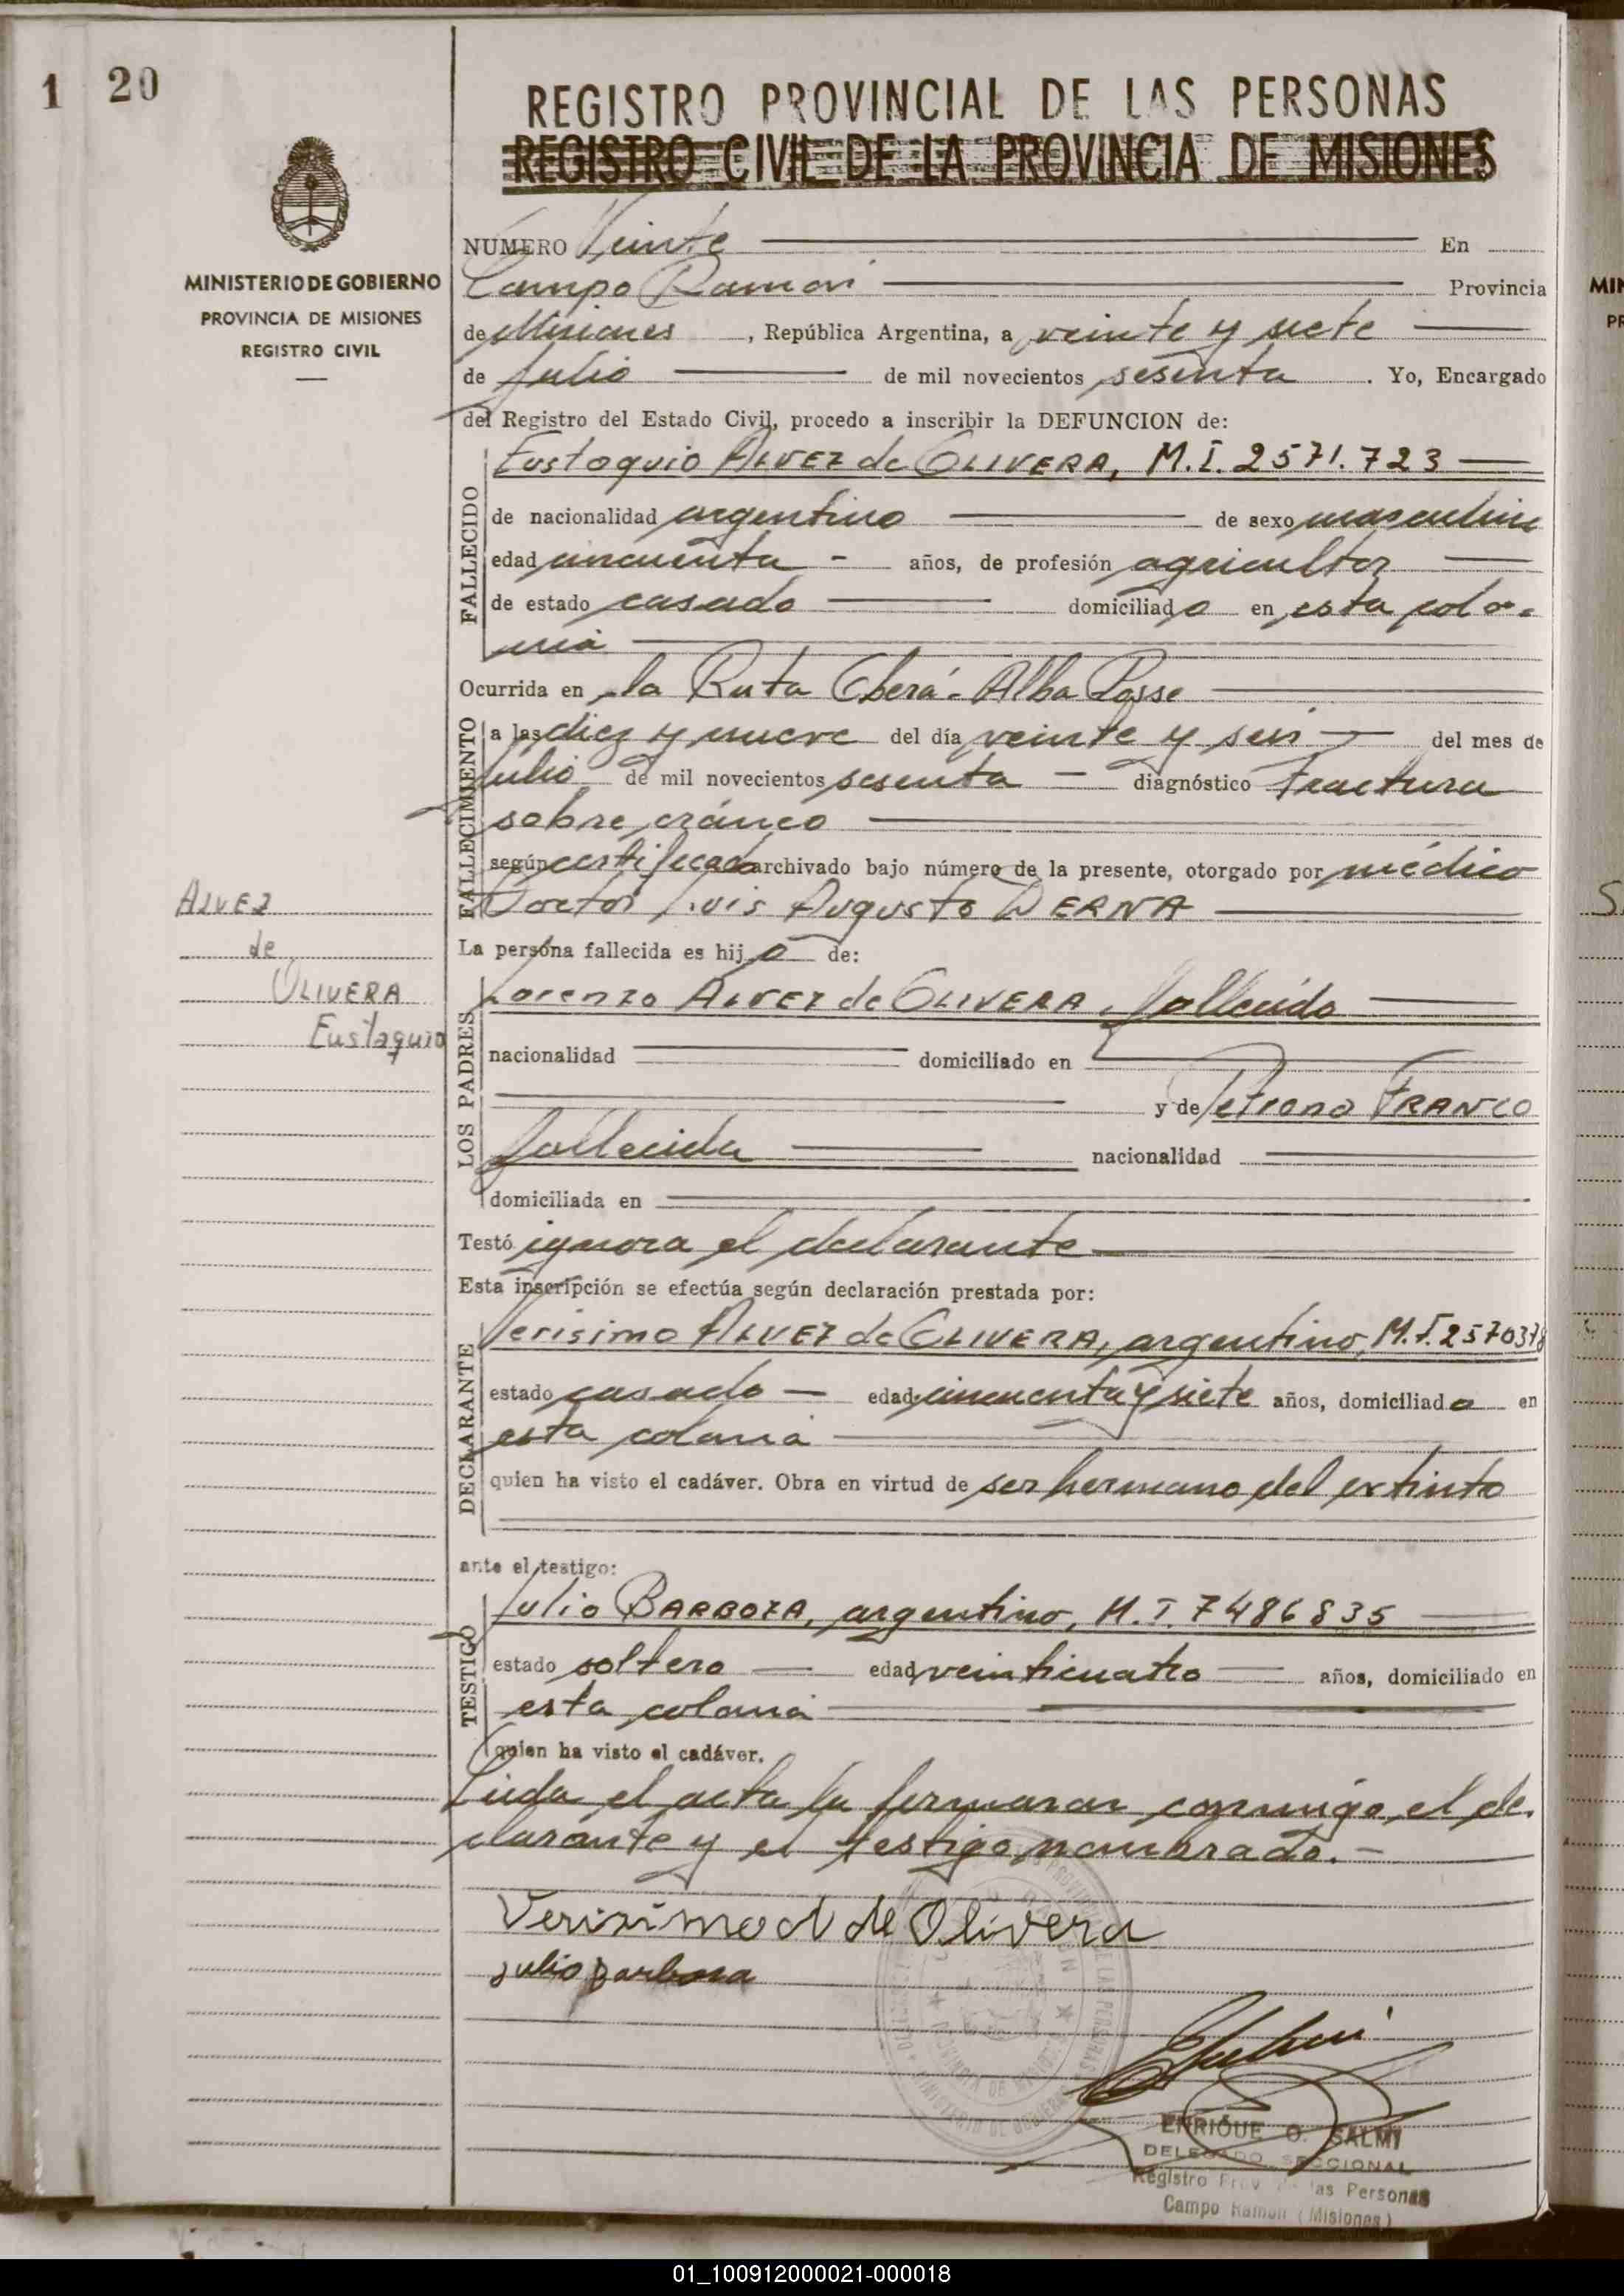 1 20
REGISTRO PROVINCIAL DE LAS PERSONAS
REGISTRO CIVIL DE LA PROVINCIA DE MISIONES
MINISTERIO DE GOBIERNO
PROVINCIA DE MISIONES
REGISTRO CIVIL
NUMERO Veinte En
Campo Ramon Provincia
de Misiones, República Argentina, a veinte y siete
de Julio de mil novecientos sesenta. Yo, Encargado
del Registro del Estado Civil, procedo a inscribir la DEFUNCION de:
FALLECIDO
Eustaquio ALVEZ de OLIVERA, M.I. 2571.723
de nacionalidad argentino de sexo masculino
edad cincuenta - años, de profesión agricultor
de estado casado domiciliado en esta colo-
nia
Ocurrida en la Ruta Oberá-Alba Posse
FALLECIMIENTO
a las diez y nueve del día veinte y seis del mes de
Julio de mil novecientos sesenta - diagnóstico Fractura
sobre cráneo
según certificado archivado bajo número de la presente, otorgado por médico
Doctor Luis Augusto DERNA
ALVEZ
de
OLIVERA
Eustaquio
La persona fallecida es hijo de:
LOS PADRES
Lorenzo ALVEZ de OLIVERA, fallecido
nacionalidad domiciliado en
y de Petrona FRANCO
fallecida nacionalidad
domiciliada en
Testó ignora el declarante
Esta inscripción se efectúa según declaración prestada por:
DECLARANTE
Verisimo ALVEZ de OLIVERA, argentino, M.I. 2570378
estado casado - edad cincuenta y siete años, domiciliado en
esta colonia
quien ha visto el cadáver. Obra en virtud de ser hermano del extinto
ante el testigo:
TESTIGO
Julio BARBOZA, argentino, M.I. 7486835
estado soltero edad veinticuatro años, domiciliado en
esta colonia
quien ha visto el cadáver.
Leida el acta la firmaron conmigo, el de-
clarante y el testigo nombrado.-
Verisimo A de Olivera
Julio Barboza
ENRIQUE O. SALMI
DELEGADO SECCIONAL
Registro Prov. de las Personas
Campo Ramon (Misiones)
01_100912000021-000018